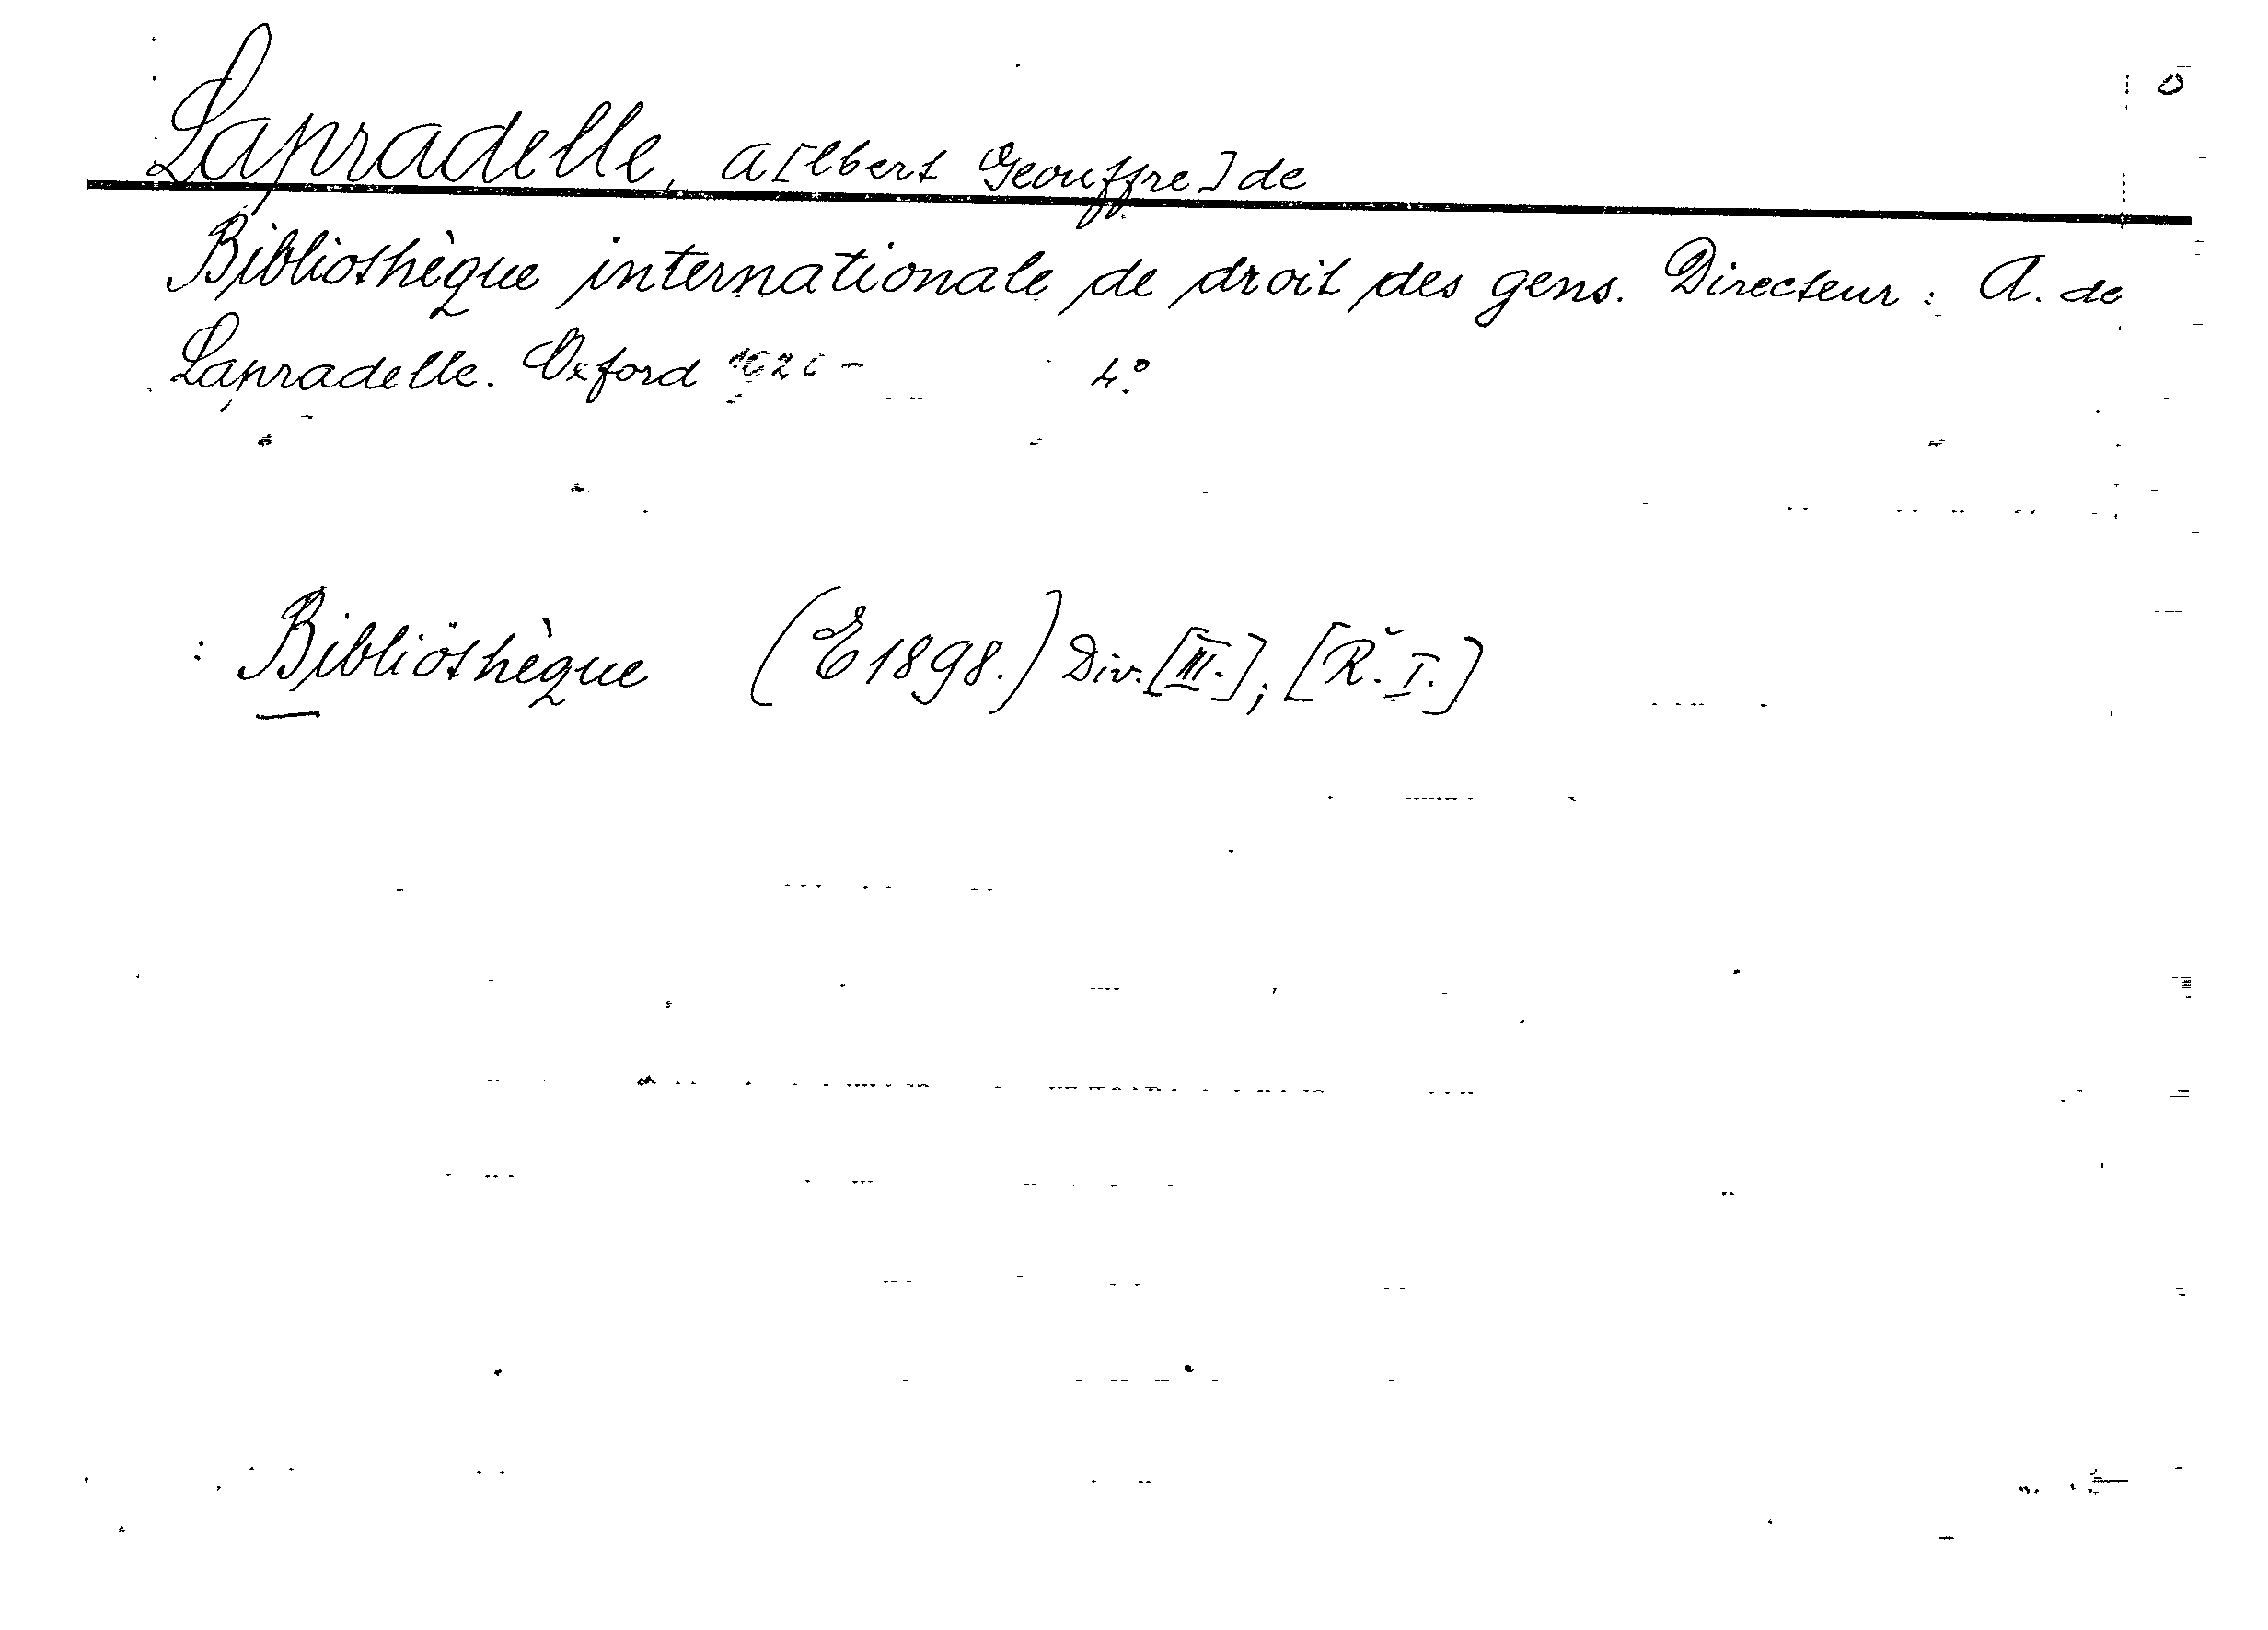 Lapradelle, A[lbert Geouffre] de
Bibliothèque internationale de droit des gens. Directeur: A. de
Lapradelle. Oxford – 4°
: Bibliothèque (E 1898.) Div. [III.]; [R. I.]